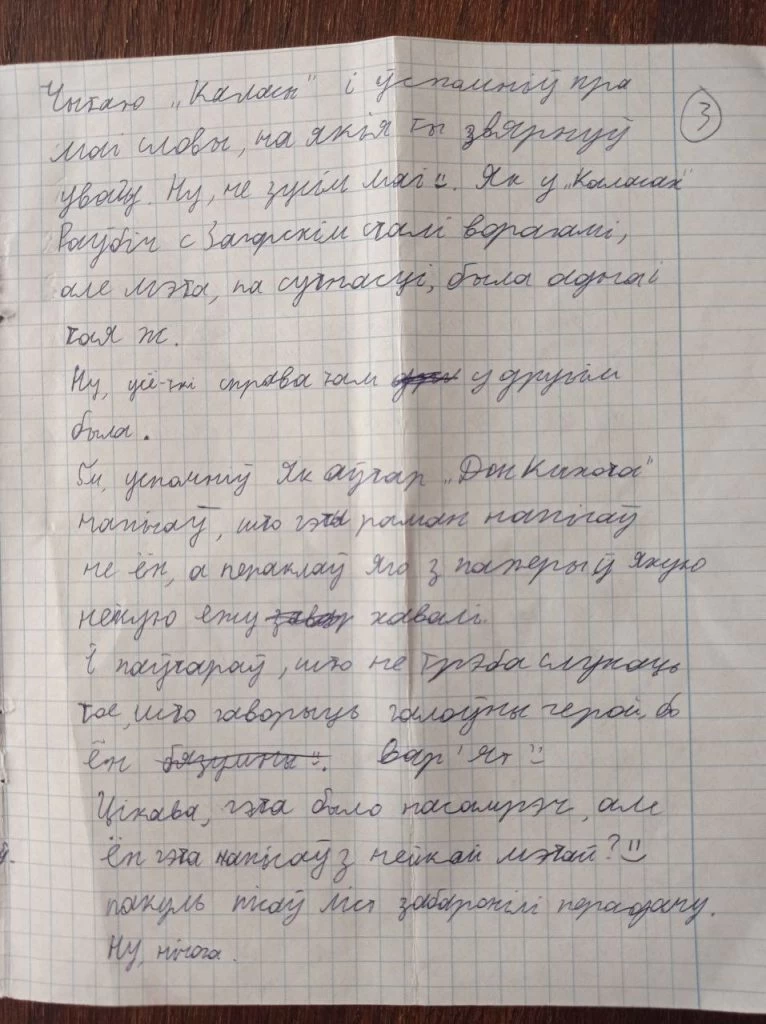 Чытаю „Каласы" і ўспомніў пра
3
маі словы, на якія ты звярнуў
увагу. Ну, не зусім маі :). Як у „Каласах"
Раўбіч с Загорскім сталі ворагамі,
але мэта, па сутнасці, была адна і
тая ж.
Ну, усё-ткі справа там у другім
была.
успомніў як аўтар „Дон Кихота"
напісаў, што гэты раман напісаў
не ён, а пераклаў яго з паперы ў якую
нейкую ежу хавалі.
І паўтараў, што не трэба слухаць
тое, што гаворыць галоўны герой, бо
ён бязумны :). Вар'ят :)
Цікава, гэта было насамрэч, але
ён гэта напісаў з нейкай мэтай? :)
пакуль пісаў ліст забаранілі перадачу.
Ну, нічога.